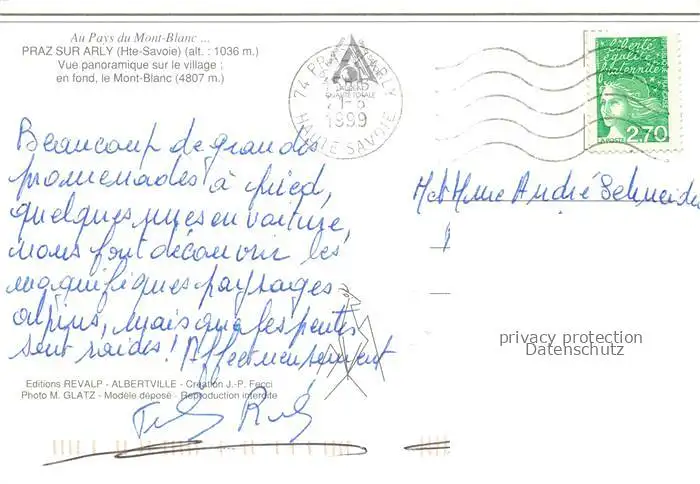 Au Pays du Mont-Blanc ...
PRAZ SUR ARLY (Hte-Savoie) (alt. : 1036 m.)
Vue panoramique sur le village ;
en fond, le Mont-Blanc (4807 m.)
74 PRAZ ARLY
QUALITÉ TOTALE
1999
HAUTE SAVOIE
liberté
égalité
fraternité
LA POSTE
2,70
Beaucoup de grandes
promenades à pied,
quelques unes en voiture,
nous font découvrir les
magnifiques paysages
alpins, mais que les pentes
sont raides ! Affectueusement
M et Mme André Schneider
privacy protection
Datenschutz
Editions REVALP - ALBERTVILLE - Création J.-P. Fecci
Photo M. GLATZ - Modèle déposé - Reproduction interdite